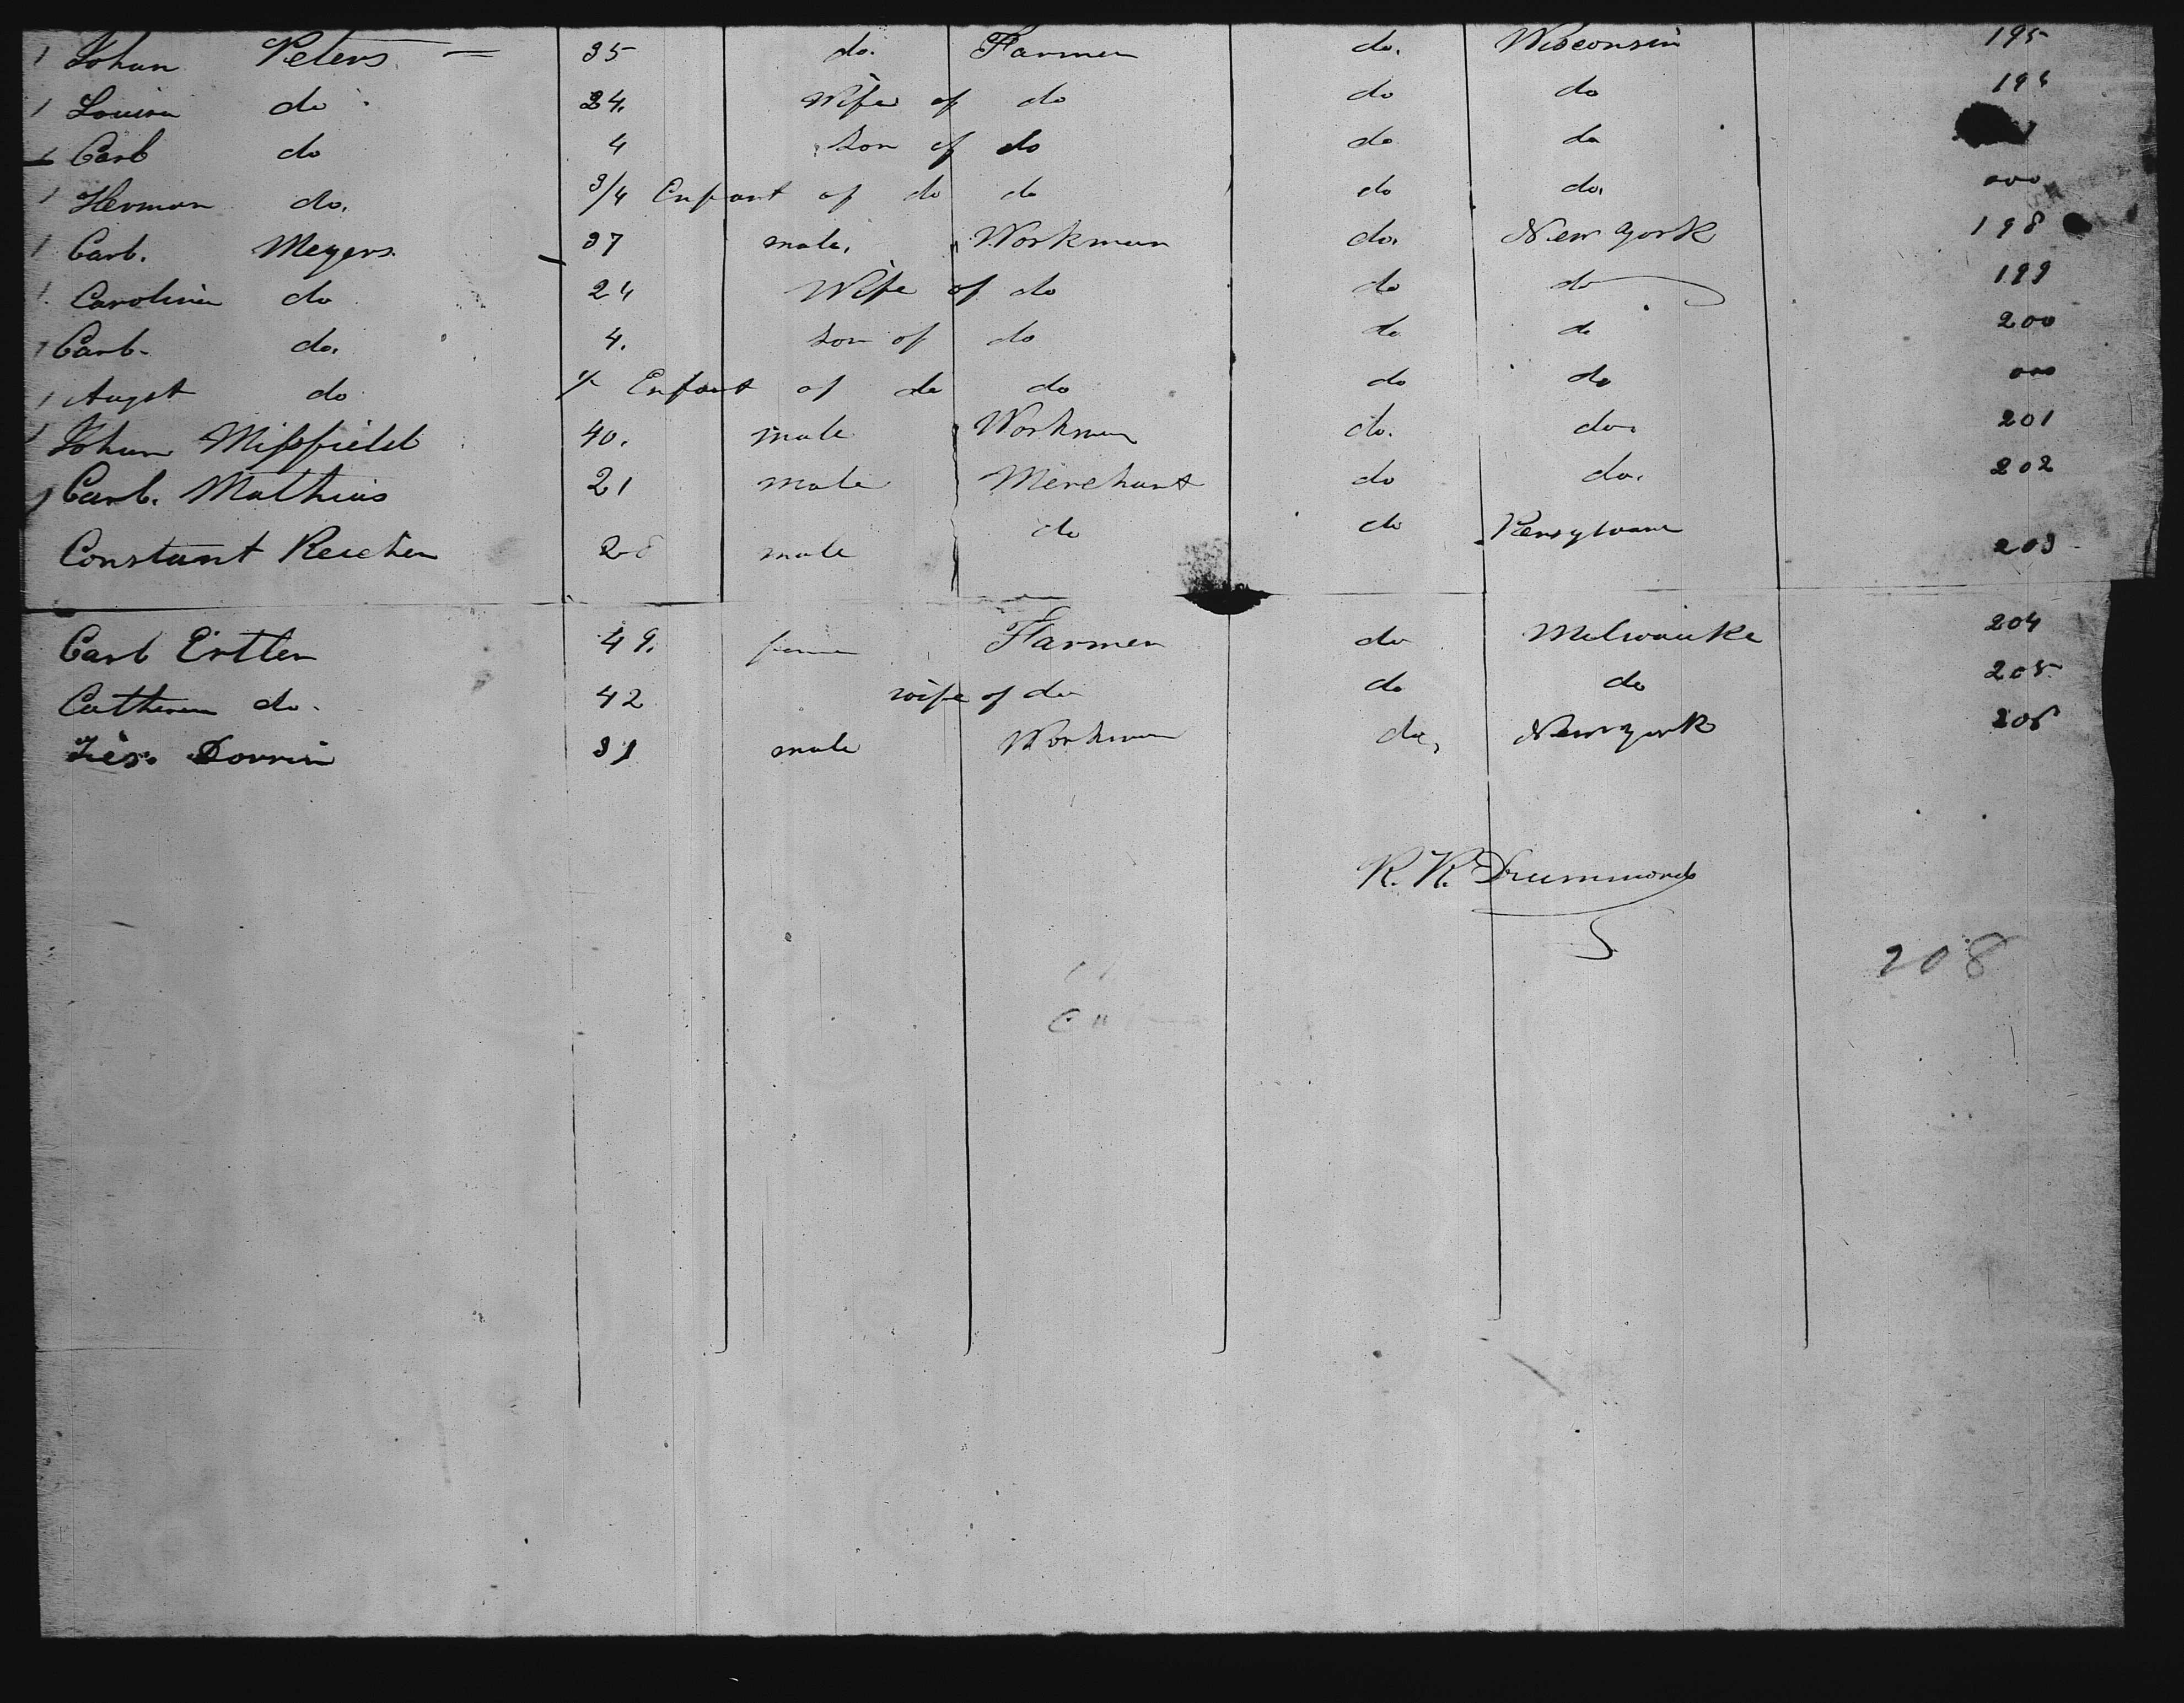 1 Johan Peters 35 do. Farmer do. Wisconsin 195
1 Louisa do 24. Wife of do do do 196
1 Carl do 4 Son of do do do
1 Herman do. 3/4 Enfant of do do do do. 000
1 Carl. Meyers. 37 male. Workman do. New york 198
1. Carolina do 24 Wife of do do do 199
1 Carl. do. 4. Son of do do do 200
1 Augst do Enfant of do do do do 000
1 Johan Mißfield 40. male Workman do. do. 201
1 Carl. Mathias 21 male Merchant do do. 202
Constant Reicher 28 male do do Pensylvane 203
Carl Ertler 49. Farmer do Milwauke 204
Catheren do. 42 wife of do do do 205
31 male Workman do, New york 206
R. R. Drummond
208